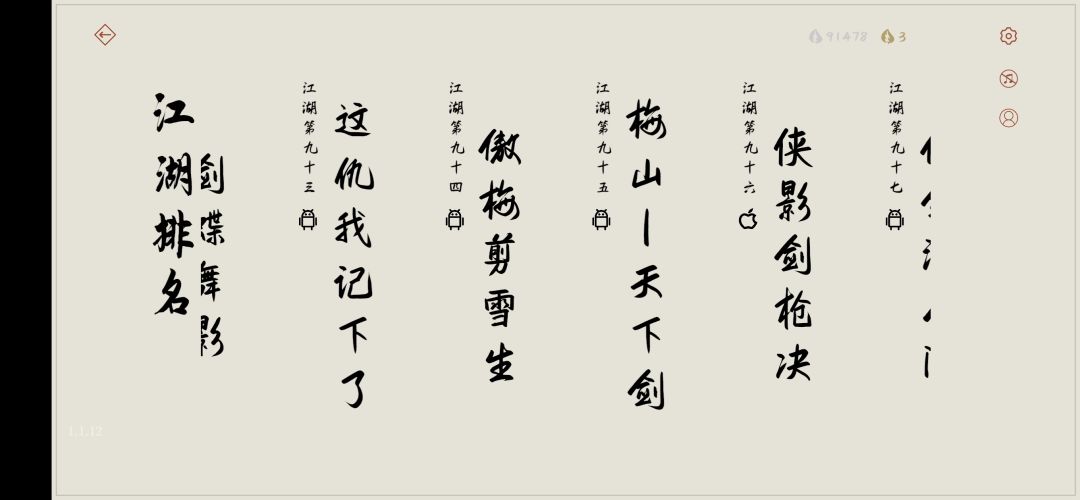 91478
3
江湖排名
剑喋舞影
江湖第九十三
这仇我记下了
江湖第九十四
傲梅剪雪生
江湖第九十五
梅山丨天下剑
江湖第九十六
侠影剑枪决
江湖第九十七
1.1.12